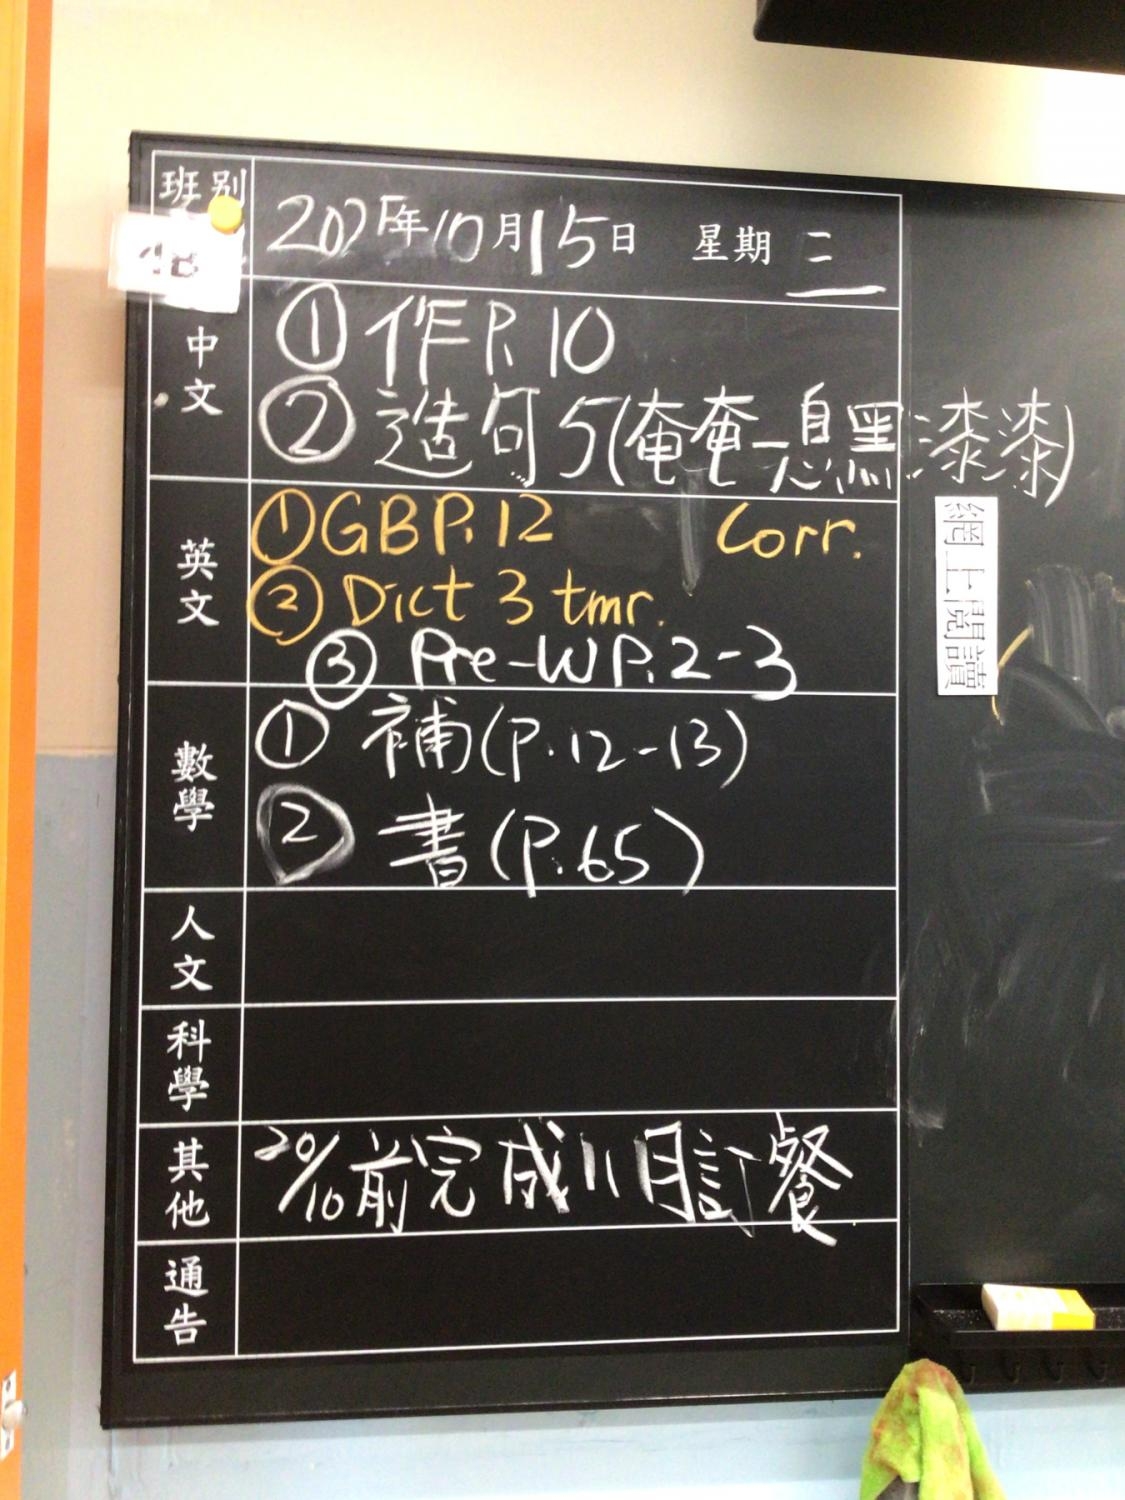 班別
4B
2025年10月15日 星期三
中文
① 作P.10
② 造句5(奄奄一息黑漆漆)
英文
① GBP.12 Corr.
② Dict 3 tmr.
③ Pre-WP.2-3
網上閱讀
數學
① 補(P.12-13)
② 書(P.65)
人文
科學
其他
20/10前完成11月訂餐
通告